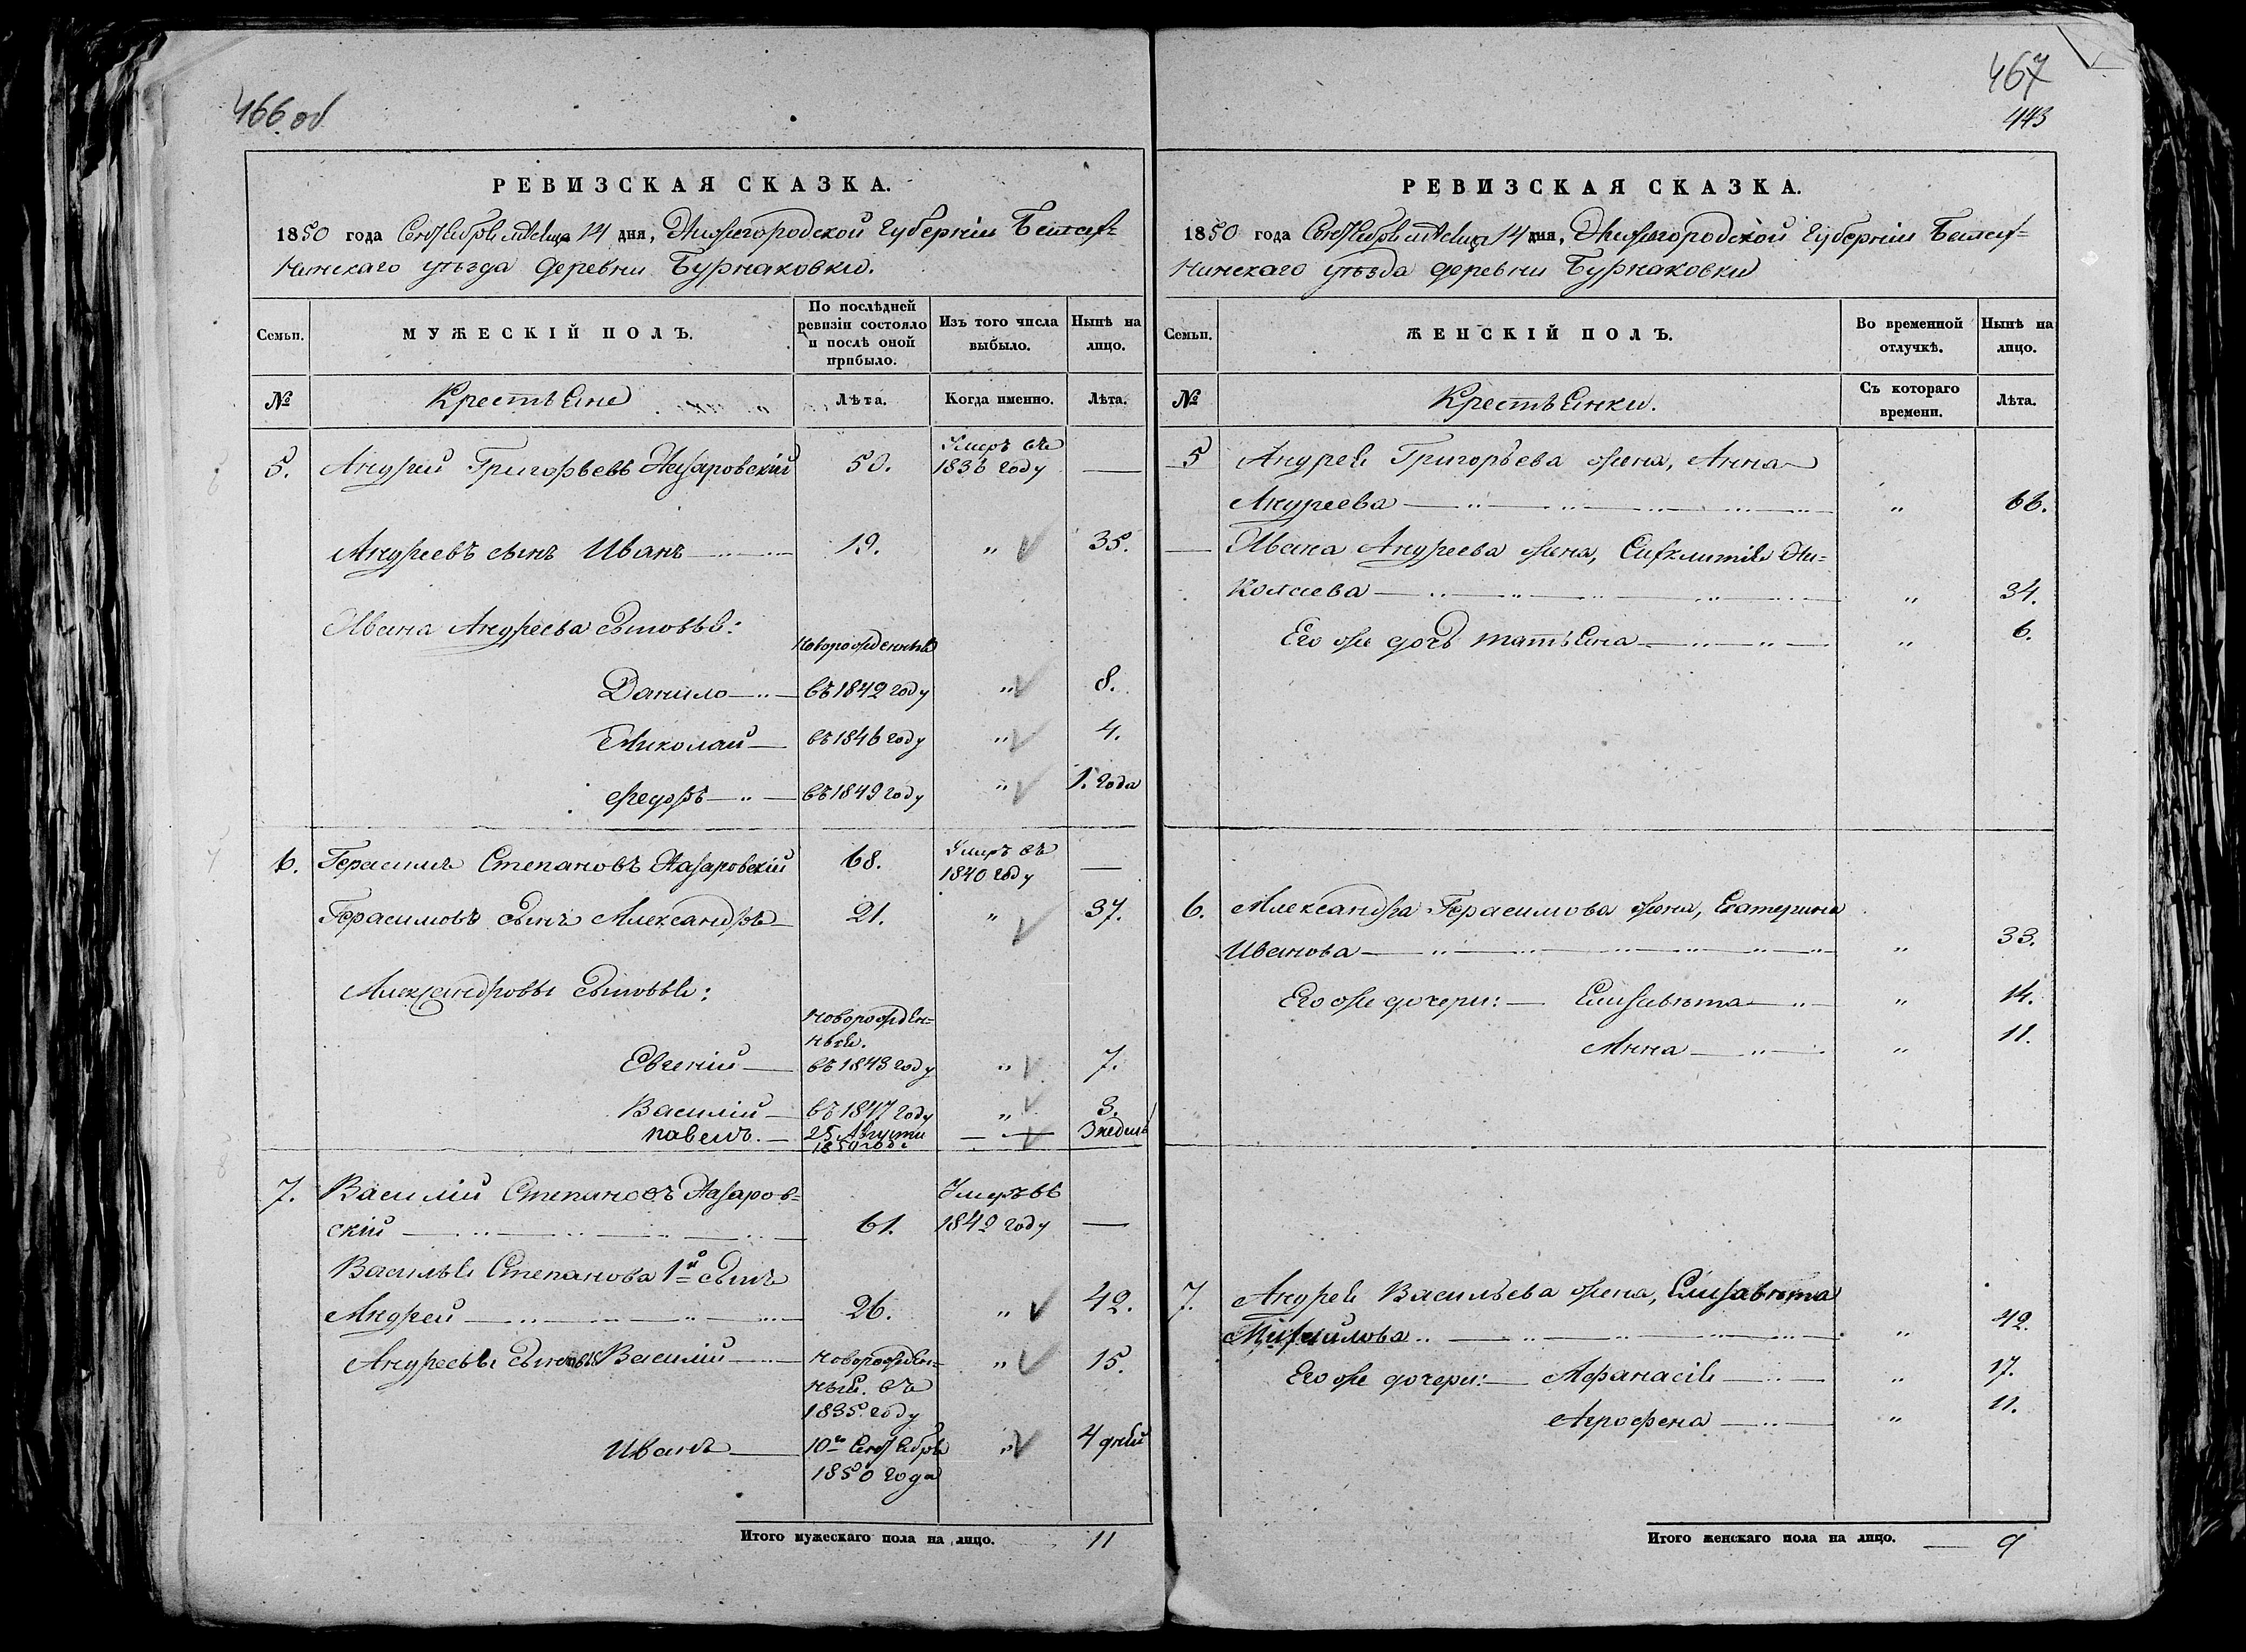 466 об
РЕВИЗСКАЯ СКАЗКА.
1850 года Сентября мѣсяца 14 дня, Нижегородской Губерніи
нинскаго уѣзда деревни Бурнаковки.
Семьи.
МУЖЕСКІЙ ПОЛЪ.
По послѣдней ревизіи состояло и послѣ оной прибыло.
Изъ того числа выбыло.
Нынѣ на лицо.
№ Крестьяне Лѣта. Когда именно. Лѣта.
5. Андрей Григорьевъ Назаровскій 50. Умеръ въ 1836 году —
Андреевъ сынъ Иванъ 19. „ 35.
Ивана Андреева сыновья:
новорожденные
Данило въ 1842 году „ 8.
Николай въ 1846 году „ 4.
Федоръ въ 1849 году „ 1. года
6. Герасимъ Степановъ Назаровскій 68. Умеръ въ 1840 году —
Герасимовъ сынъ Александръ 21. „ 37.
Александровы сыновья:
новорожден=
ный.
Евгений въ 1843 году „ 7.
Василій въ 1847 году „ 3.
Павелъ. 25 Августа 1850 года — 3 недель
7. Василій Степановъ Назаров=
скій 61. Умеръ въ 1842 году —
Василья Степанова 1й сынъ
Андрей 26. „ 42.
Андреевы сыновья Василій новорожден=
ный. въ
1835. году „ 15.
Иванъ 10го Сентября
1850 года „ 4 дней
Итого мужескаго пола на лицо. 11
467
443
РЕВИЗСКАЯ СКАЗКА.
1850 года Сентября мѣсяца 14 дня, Нижегородской Губерніи
нинскаго уѣзда деревни Бурнаковки
Семьи.
ЖЕНСКІЙ ПОЛЪ.
Во временной отлучкѣ.
Нынѣ на лицо.
№ Крестьянки. Съ котораго времени. Лѣта.
5 Андрея Григорьева жена, Анна
Андреева „ 66.
Ивана Андреева жена, Синклитія Ни=
колаева „ 34.
Его же дочь Татьяна „ 6.
6. Александра Герасимова жена, Екатерина
Иванова „ 33.
Его же дочери: Елизавѣта „ 14.
Анна „ 11.
7. Андрея Васильева жена, Елизавѣта
Михайлова „ 42.
Его же дочери: Афанасія „ 17.
Агрофена „ 11.
Итого женскаго пола на лицо. 9